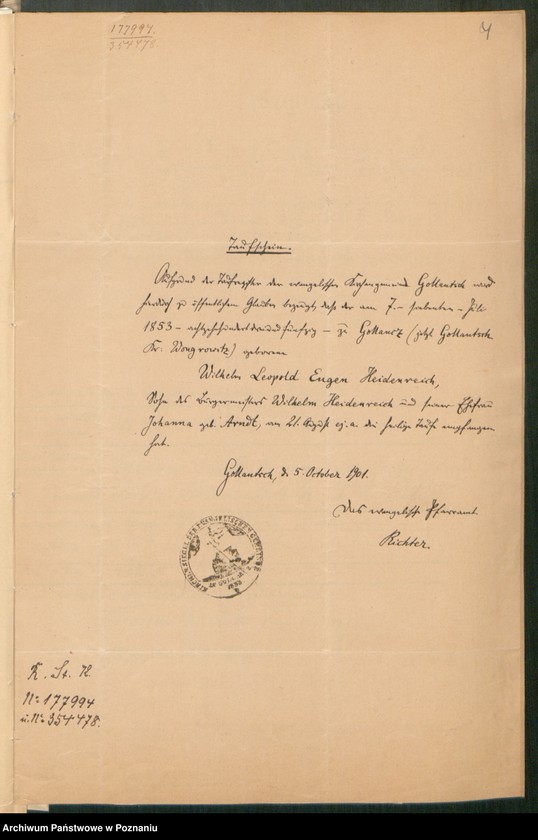 177994.
354478.
4
Taufschein.
Auf Grund der Taufregister der evangelischen Kirchengemeinde Gollantsch wird
hierdurch zu öffentlichem Glauben bezeugt, daß der am 7.- siebenten - Juli
1853 - achtzehnhundertdreiundfünfzig - zu Gollancz (jetzt Gollantsch
Kr. Wongrowitz) geborene
Wilhelm Leopold Eugen Heidenreich,
Sohn des Bürgermeisters Wilhelm Heidenreich und seiner Ehefrau
Johanna geb. Arndt, am 21. August ej. a. die heilige Taufe empfangen
hat.
Gollantsch, d. 5. October 1901.
Das evangelische Pfarramt.
Richter
KIRCHENSIEGEL DER EVANGELISCHEN GEMEINDE
K. St. R.
No 177994
u. No 354478.
Archiwum Państwowe w Poznaniu